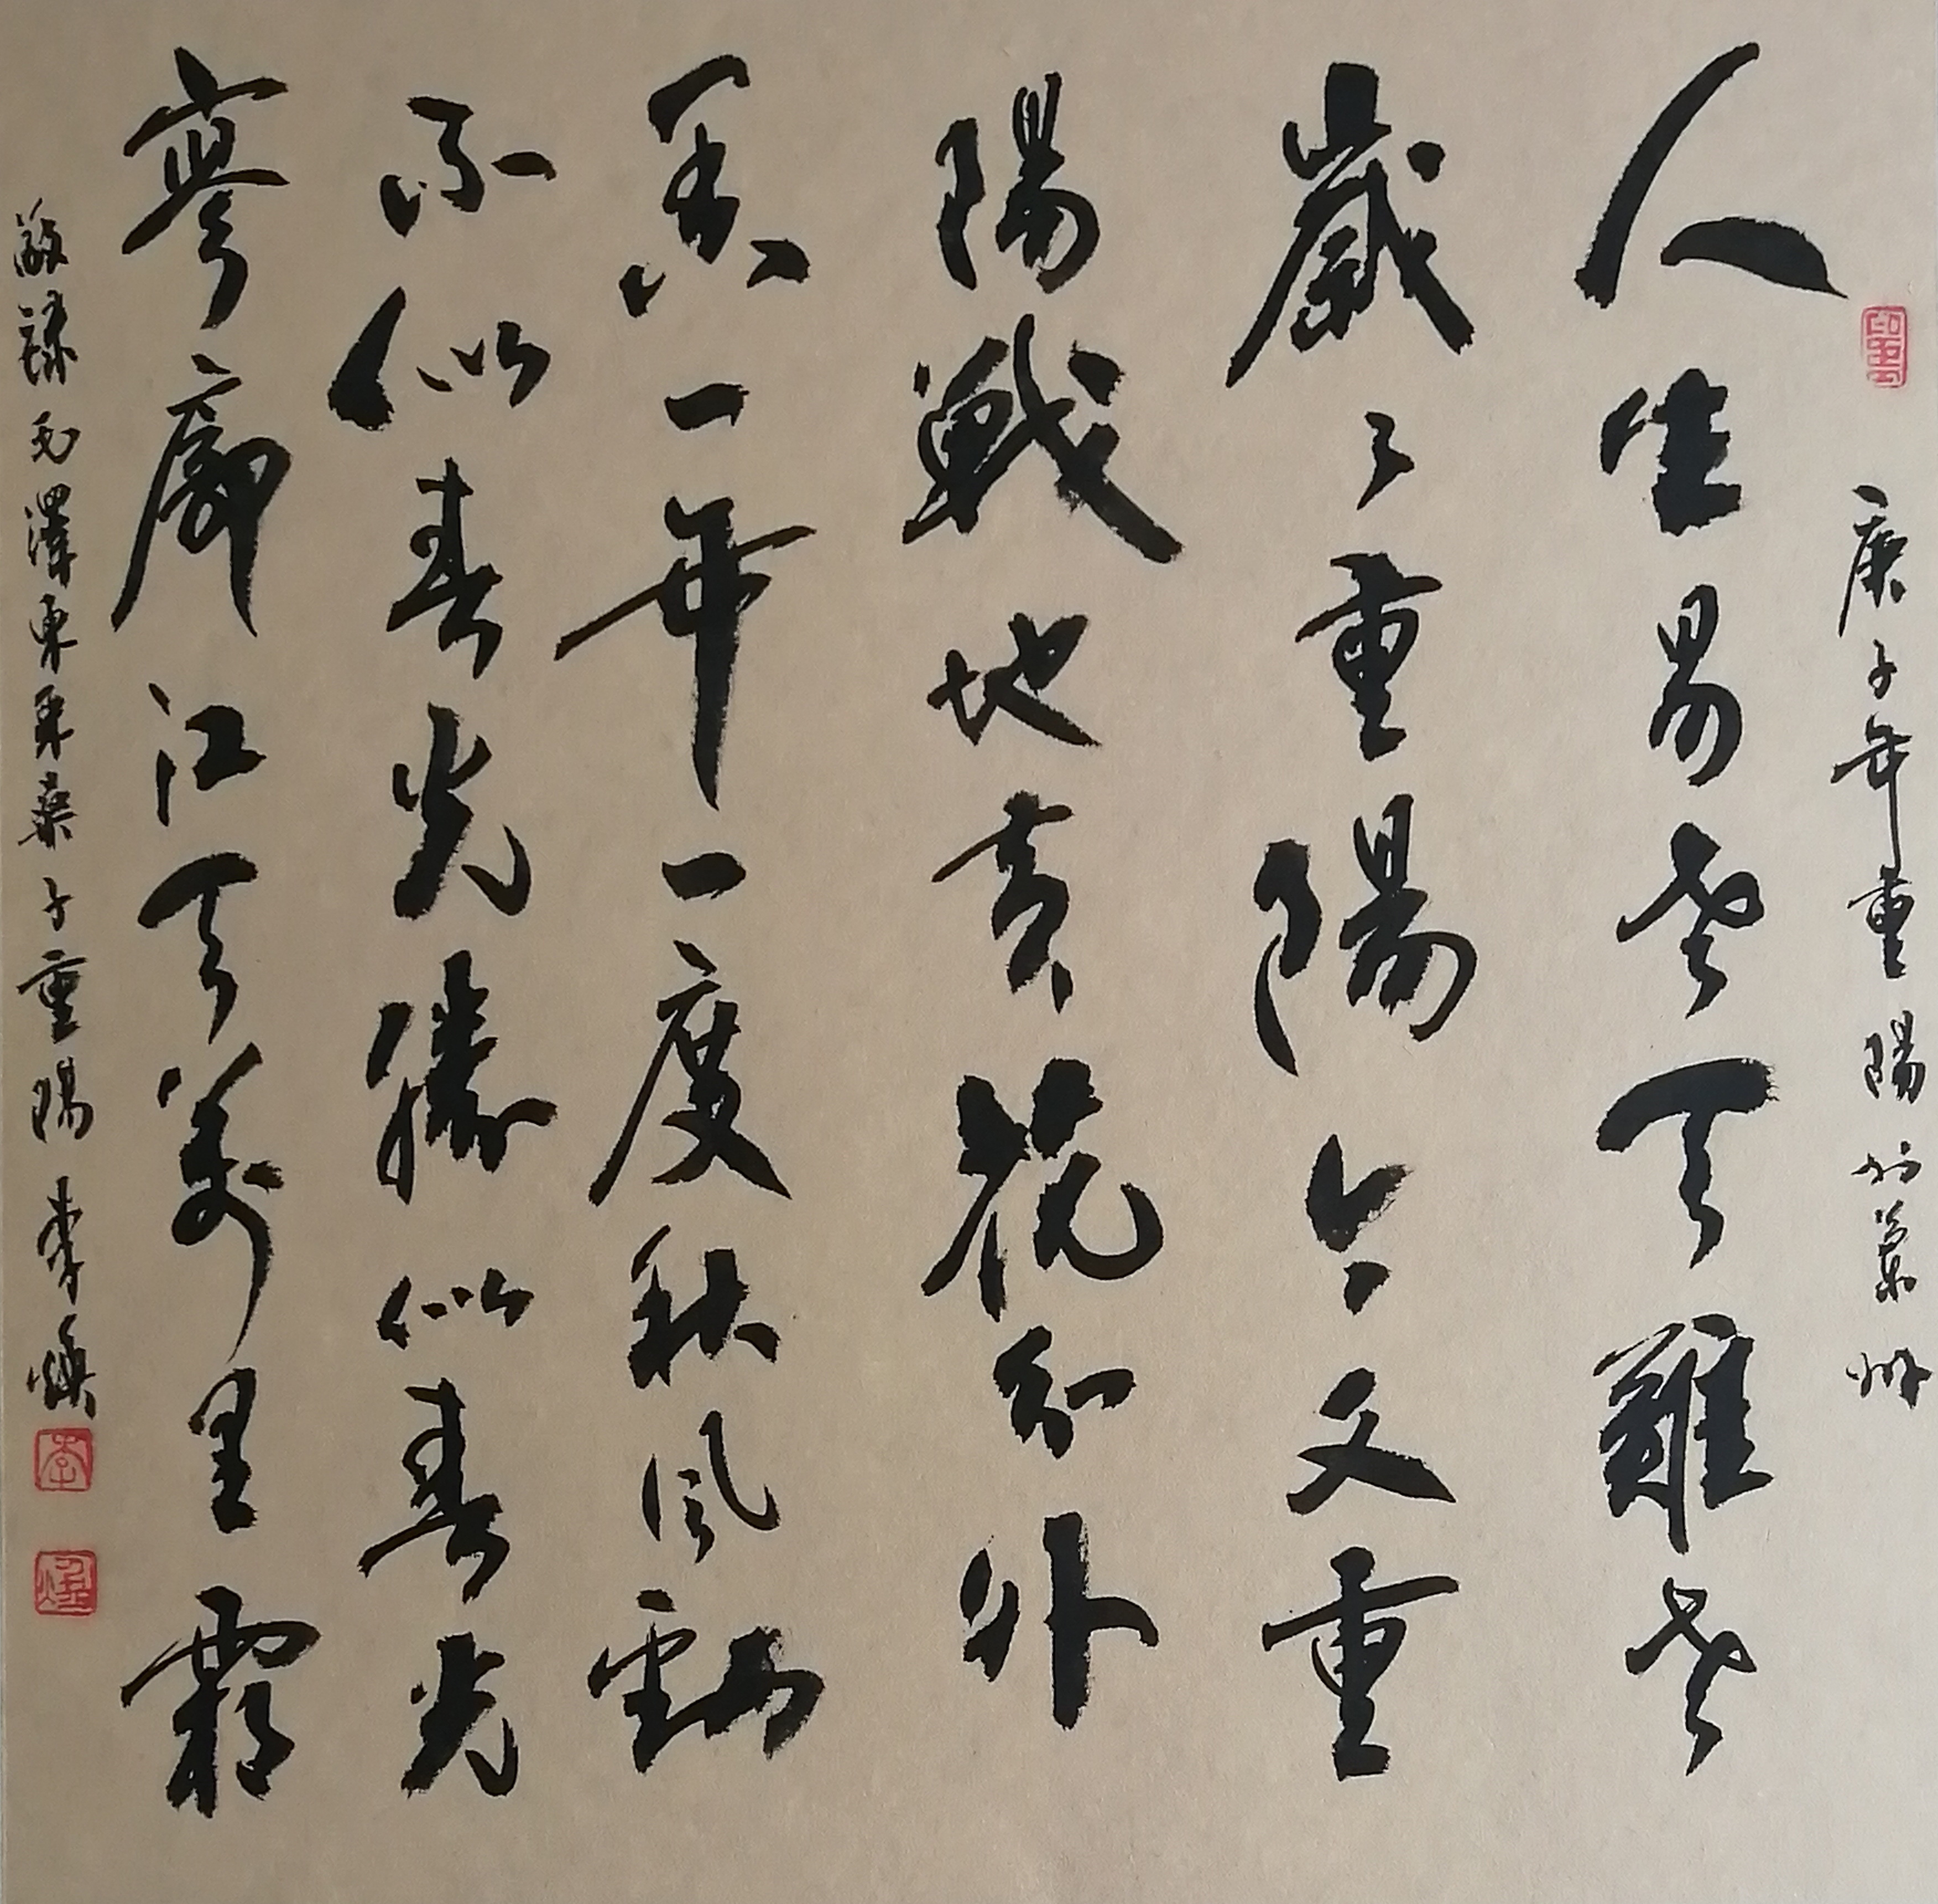 庚子年重陽於州
人生易老天難老
歲々重陽今又重
陽戰地黃花分外
香一年一度秋風勁
不似春光勝似春光
寥廓江天萬里霜
敬錄毛澤東采桑子重陽李煥
李
煥